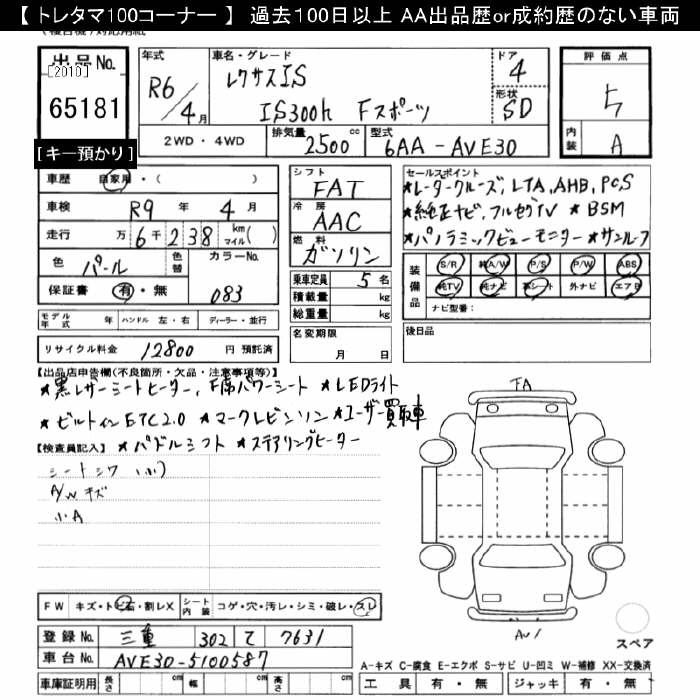 【 トレタマ100コーナー 】 過去100日以上 AA出品歴or成約歴のない車両
出品No.
[2010]
65181
[キー預かり]
年式
R6/4月
車名・グレード
レクサスIS
IS300h Fスポーツ
ドア
4
形状
SD
2WD・4WD
排気量
2500 cc
型式
6AA-AVE30
評価点
5
内装
A
車歴 自家用・( )
車検 R9年4月
走行 万6千238 km マイル( )
色 パール
色替
カラーNo.
083
保証書 有・無
シフト
FAT
冷房
AAC
燃料
ガソリン
乗車定員 5名
積載量 kg
総重量 kg
名変期限
月 日
セールスポイント
★レーダークルーズ, LTA, AHB, PCS
★純正ナビ, フルセグTV ★BSM
★パノラミックビューモニター ★サンルーフ
装備品
S/R 純A/W P/S P/W ABS
純TV 純ナビ 革シート 外ナビ エアB
ナビ型番:
後日品
モデル年式 年 ハンドル 左・右 ディーラー・並行
リサイクル料金 12800 円 預託済
【出品店申告欄(不良箇所・欠品・注意事項等)】
★黒レザーシートヒーター, F席パワーシート ★LEDライト
★ビルトインETC2.0 ★マークレビンソン ★ユーザー買取車
★パドルシフト ★ステアリングヒーター
【検査員記入】
シートシワ(小)
A/Wキズ
小A
FA
AU1
スペア
FW キズ・トビ石・割レX
シート内装 コゲ・穴・汚レ・シミ・破レ・スレ
登録No. 三重 302 て 7631
車台No. AVE30-5100587
車庫証明用 長さ cm 幅 cm 高さ cm
A-キズ C-腐食 E-エクボ S-サビ U-凹ミ W-補修 XX-交換済
工具 有・無 ジャッキ 有・無